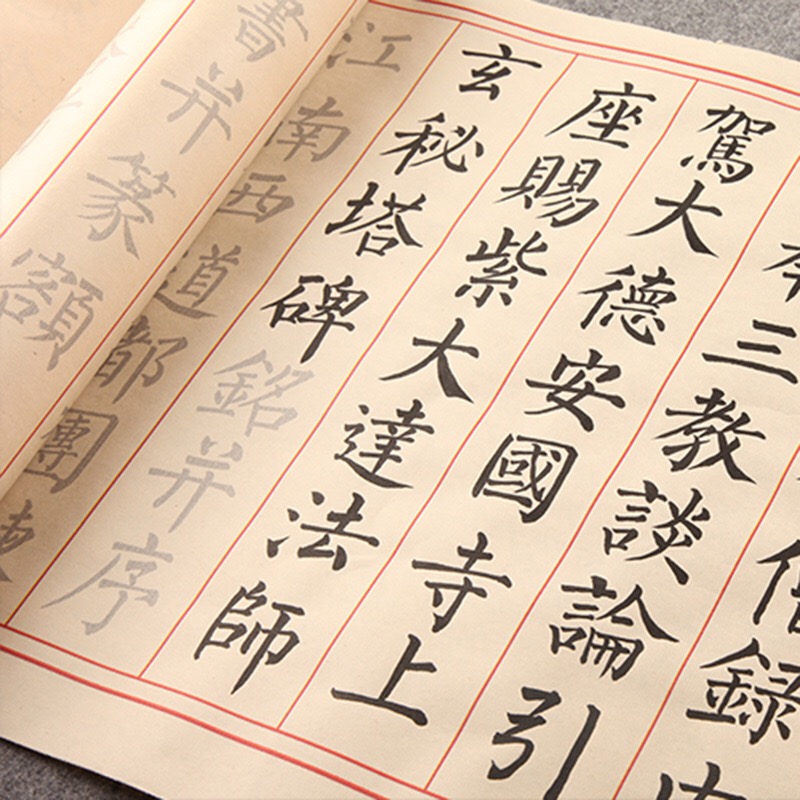 錄
三教談論引
駕大德安國寺上
座賜紫大達法師
玄秘塔碑銘并序
江南西道都團
書并篆額